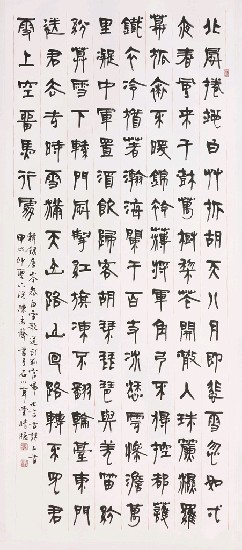 北風捲地白草折胡天八月即飛雪忽如弌
夜春風來千樹萬樹梨花開散入珠簾濕羅
幕狐裘不暖錦衾薄將軍角弓不得控都護
鐵衣冷難著瀚海闌干百丈冰愁雲慘澹萬
里凝中軍置酒飲歸客胡琴琵琶與羌笛紛
紛暮雪下轅門風掣紅旗凍不翻輪臺東門
送君去去時雪滿天山路山迴路轉不見君
雪上空留馬行處
錄唐岑參白雪歌送武判官歸京七言古詩一首